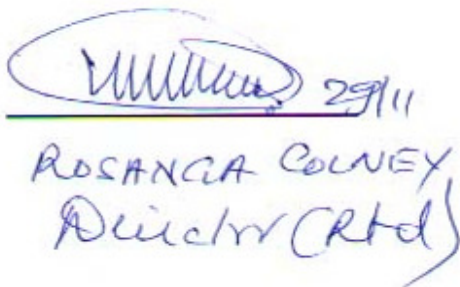 29/11
ROSANGA COLNEY
Director (Rtd)